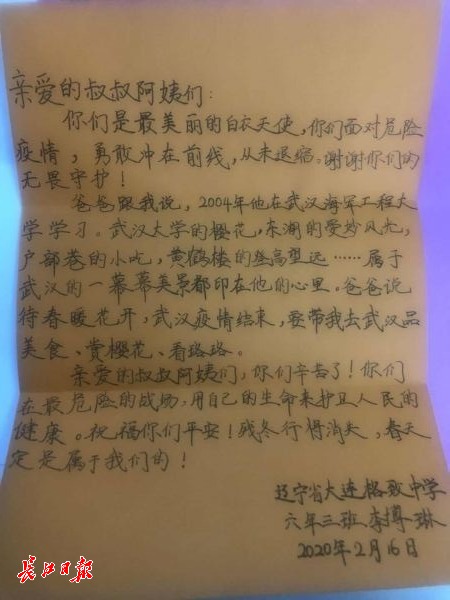 亲爱的叔叔阿姨们：
你们是最美丽的白衣天使，你们面对危险
疫情，勇敢冲在前线，从未退缩。谢谢你们的
无畏守护！
爸爸跟我说，2004年他在武汉海军工程大
学学习。武汉大学的樱花，东湖的曼妙风光，
户部巷的小吃，黄鹤楼的登高望远……属于
武汉的一幕幕美景都印在他的心里。爸爸说
待春暖花开，武汉疫情结束，要带我去武汉品
美食、赏樱花、看珞珞。
亲爱的叔叔阿姨们，你们辛苦了！你们
在最危险的战场，用自己的生命来护卫人民的
健康。祝福你们平安！残冬行将消失，春天
定是属于我们的！
辽宁省大连格致中学
六年三班 李博琳
2020年2月16日
长江日报